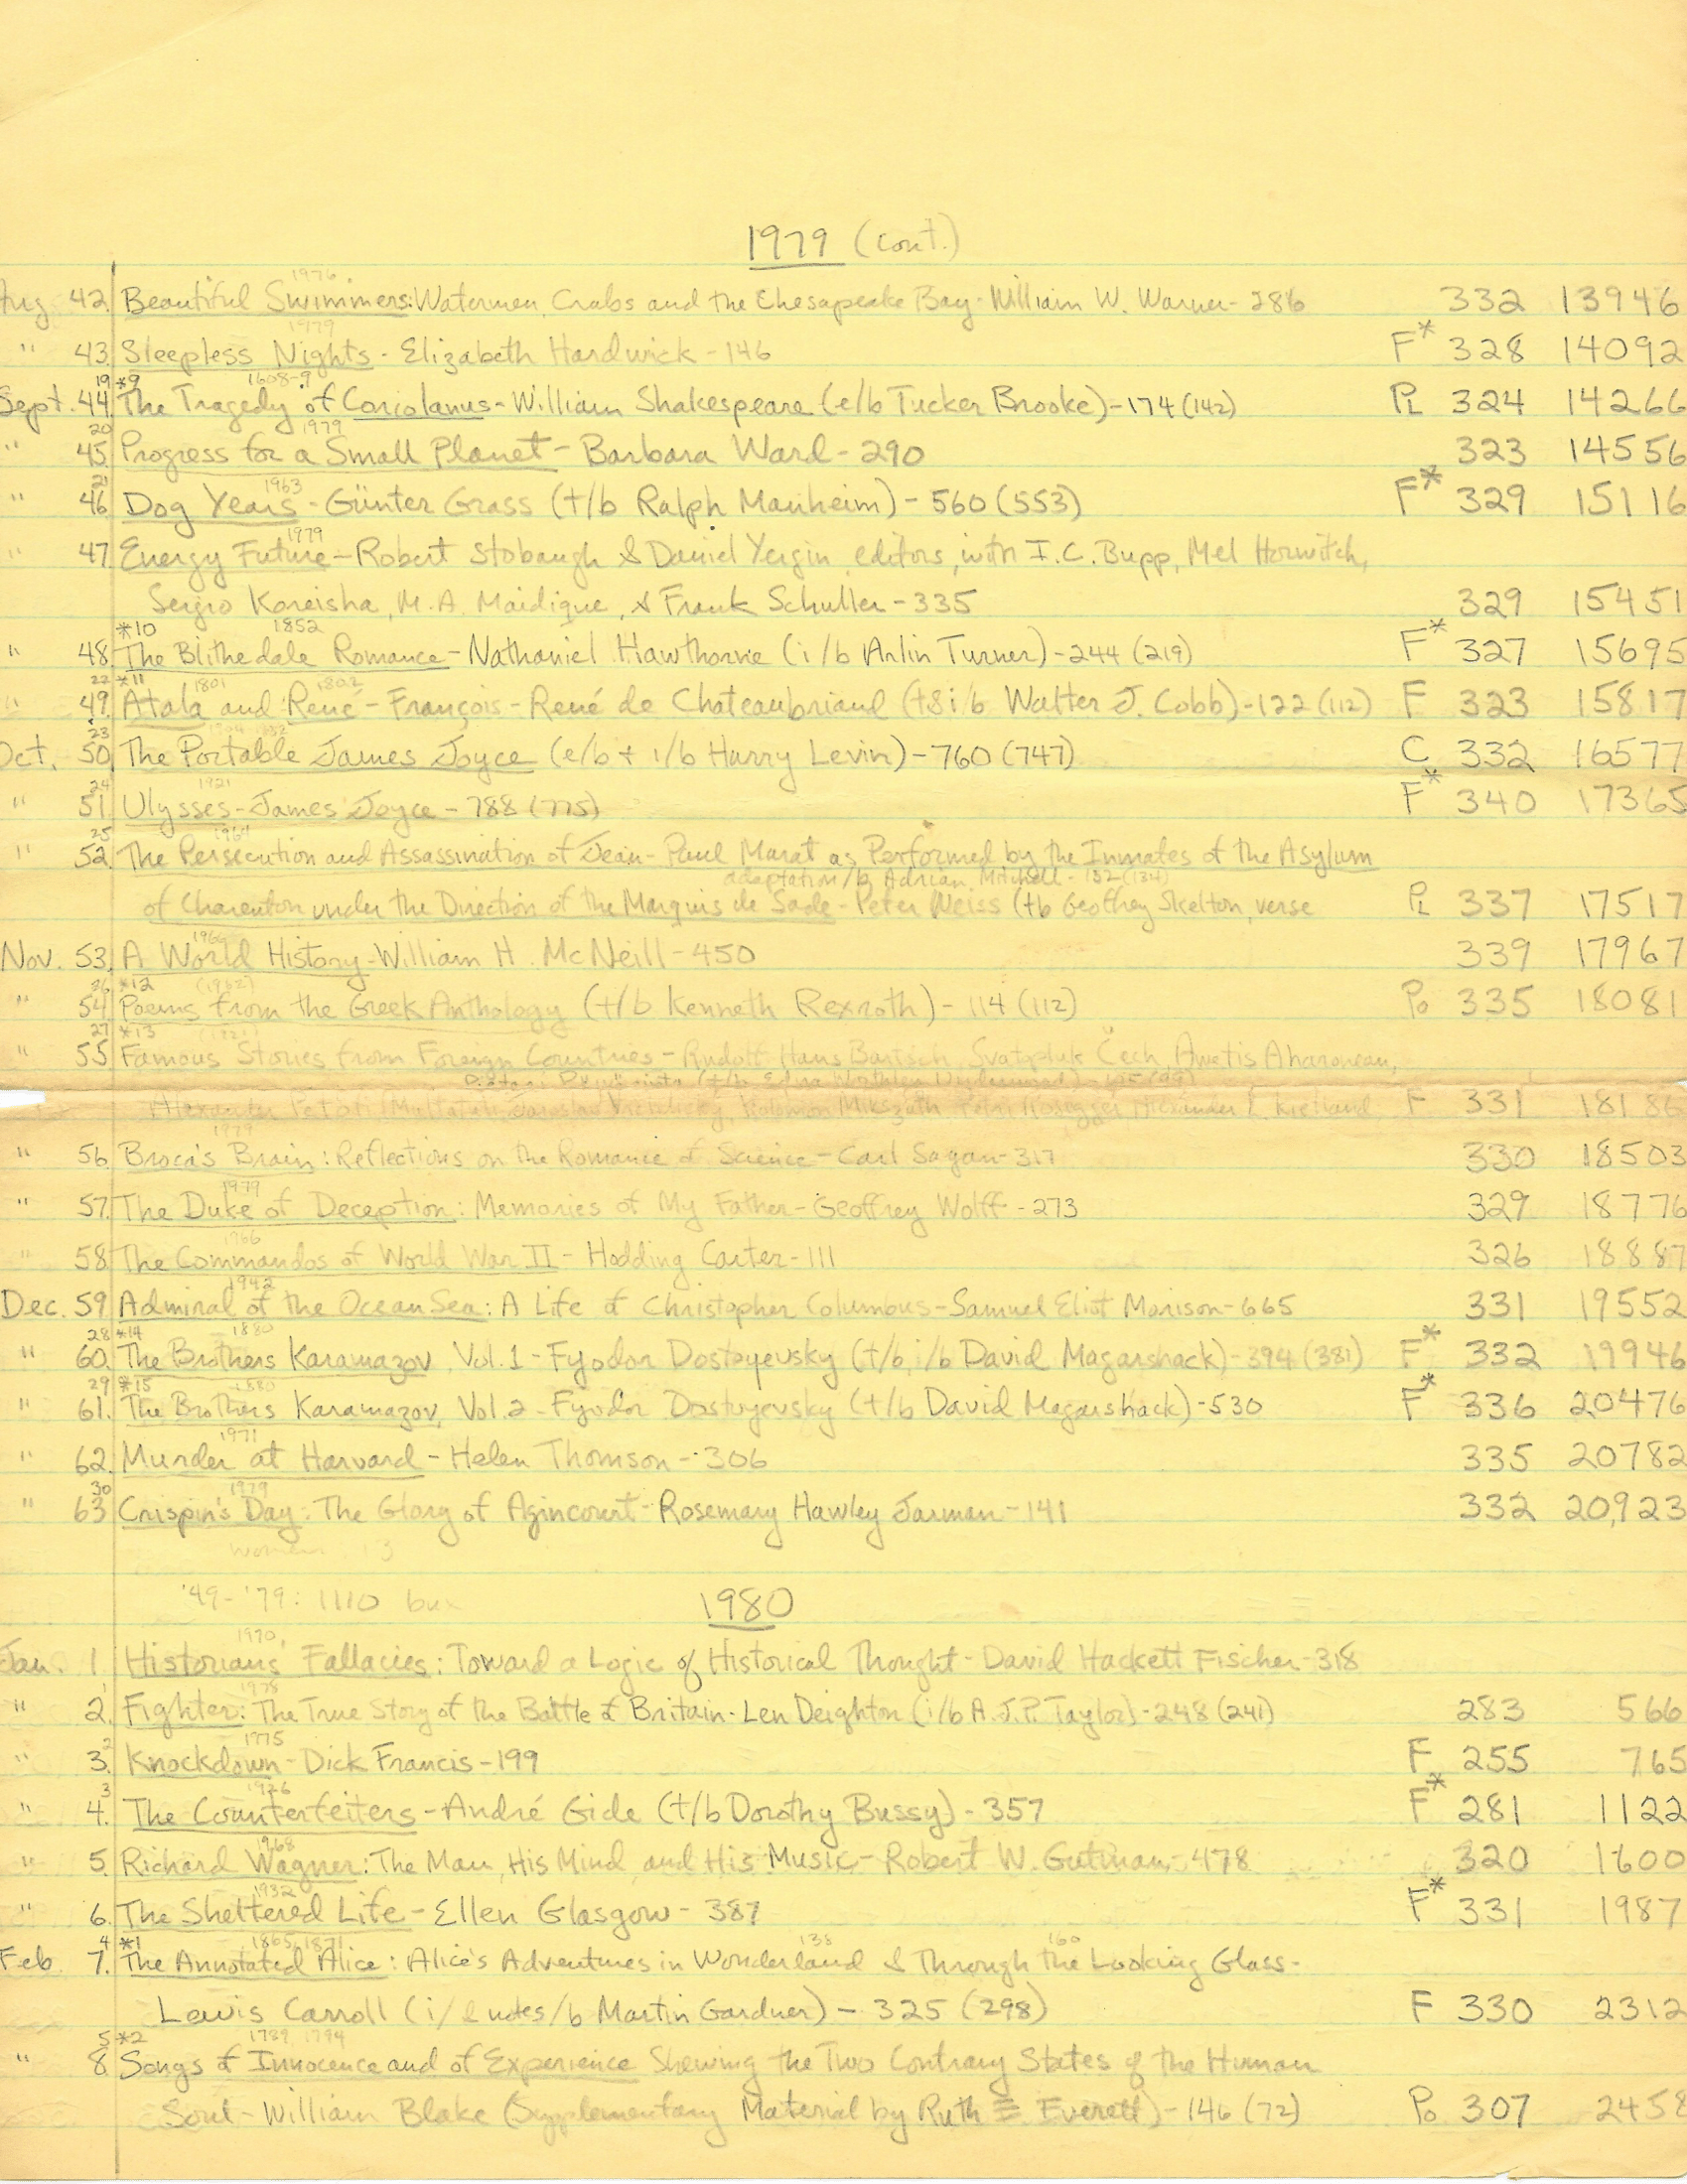 1979 (cont.)
1976
Aug 42. Beautiful Swimmers: Watermen, Crabs and the Chesapeake Bay - William W. Warner - 286 332 13946
1979
" 43. Sleepless Nights - Elizabeth Hardwick - 146 F* 328 14092
19 *9 1608-9
Sept. 44. The Tragedy of Coriolanus - William Shakespeare (e/b Tucker Brooke) - 174 (142) PL 324 14266
20 1979
" 45. Progress for a Small Planet - Barbara Ward - 290 323 14556
21 1963
" 46. Dog Years - Günter Grass (t/b Ralph Manheim) - 560 (553) F* 329 15116
1979
" 47. Energy Future - Robert Stobaugh & Daniel Yergin, editors, with I.C. Bupp, Mel Horwitch,
Sergio Koreisha, M.A. Maidique, & Frank Schuller - 335 329 15451
*10 1852
" 48. The Blithedale Romance - Nathaniel Hawthorne (i/b Arlin Turner) - 244 (219) F* 327 15695
22 *11 1801 1802
" 49. Atala and René - François-René de Chateaubriand (t&i/b Walter J. Cobb) - 122 (112) F 323 15817
23
Oct. 50. The Portable James Joyce (e/b + i/b Harry Levin) - 760 (747) C 332 16577
24 1921
" 51. Ulysses - James Joyce - 788 (775) F* 340 17365
25 1964
" 52. The Persecution and Assassination of Jean-Paul Marat as Performed by the Inmates of the Asylum
adaptation/b Adrian Mitchell - 152 (134)
of Charenton under the Direction of the Marquis de Sade - Peter Weiss (t/b Geoffrey Skelton, verse PL 337 17517
Nov. 53. A World History - William H. McNeill - 450 339 17967
26 *12 (1962)
" 54. Poems from the Greek Anthology (t/b Kenneth Rexroth) - 114 (112) Po 335 18081
27 *13
" 55. Famous Stories from Foreign Countries - Rudolf Hans Bartsch, Svatopluk Čech, Awetis Aharonean,
(t/b Edna Worthley Underwood)
Alexander Petöfi, Jaroslav Vrchlický, Koloman Mikszáth, Petri Rosegger, Alexander L. Kielland F 331 18186
1979
" 56. Broca's Brain: Reflections on the Romance of Science - Carl Sagan - 317 330 18503
1979
" 57. The Duke of Deception: Memories of My Father - Geoffrey Wolff - 273 329 18776
1966
" 58. The Commandos of World War II - Hodding Carter - 111 326 18887
1942
Dec. 59. Admiral of the Ocean Sea: A Life of Christopher Columbus - Samuel Eliot Morison - 665 331 19552
28 *14 1880
" 60. The Brothers Karamazov, Vol. 1 - Fyodor Dostoyevsky (t/b, i/b David Magarshack) - 394 (381) F* 332 19946
29 *15 1880
" 61. The Brothers Karamazov, Vol. 2 - Fyodor Dostoyevsky (t/b David Magarshack) - 530 F* 336 20476
1971
" 62. Murder at Harvard - Helen Thomson - 306 335 20782
30 1979
" 63. Crispin's Day: The Glory of Agincourt - Rosemary Hawley Jarman - 141 332 20,923
women 13
'49-'79: 1110 bux
1980
1970
Jan. 1. Historians' Fallacies: Toward a Logic of Historical Thought - David Hackett Fischer - 318
1 1978
" 2. Fighter: The True Story of the Battle of Britain - Len Deighton (i/b A.J.P. Taylor) - 248 (241) 283 566
2 1975
" 3. Knockdown - Dick Francis - 199 F 255 765
3 1926
" 4. The Counterfeiters - André Gide (t/b Dorothy Bussy) - 357 F* 281 1122
1968
" 5. Richard Wagner: The Man, His Mind, and His Music - Robert W. Gutman - 478 320 1600
1932
" 6. The Sheltered Life - Ellen Glasgow - 387 F* 331 1987
4 *1 1865, 1871 138 160
Feb 7. The Annotated Alice: Alice's Adventures in Wonderland & Through the Looking Glass -
Lewis Carroll (i/& notes/b Martin Gardner) - 325 (298) F 330 2312
5 *2 1789 1794
" 8. Songs of Innocence and of Experience Shewing the Two Contrary States of the Human
Soul - William Blake (Supplementary Material by Ruth E. Everett) - 146 (72) Po 307 2458